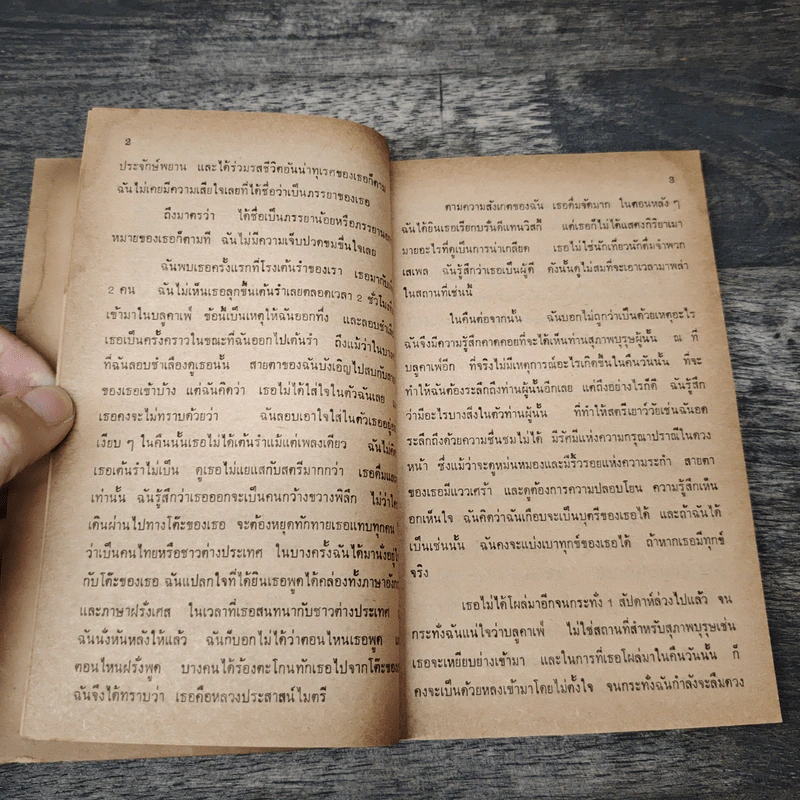 2
ประจักษ์พยาน และได้ร่วมรสชีวิตอันน่าทุเรศของเธอก็ตาม
ฉันไม่เคยมีความเสียใจเลยที่ได้ชื่อว่าเป็นภรรยาของเธอ
ถึงมาตรว่า ได้ชื่อเป็นภรรยาน้อยหรือภรรยานอก
หมายของเธอก็ตามที ฉันไม่มีความเจ็บปวดขมขื่นใจเลย
ฉันพบเธอครั้งแรกที่โรงเต้นรำของเรา เธอมากับ
2 คน ฉันไม่เห็นเธอลุกขึ้นเต้นรำเลยตลอดเวลา 2 ชั่วโมง
เข้ามาในบลูคาเฟ่ ข้อนี้เป็นเหตุให้ฉันออกทึ่ง และลอบชำเลือง
เธอเป็นครั้งคราวในขณะที่ฉันออกไปเต้นรำ ถึงแม้ว่าในบาง
ที่ฉันลอบชำเลืองดูเธอนั้น สายตาของฉันบังเอิญไปสบกับสาย
ของเธอเข้าบ้าง แต่ฉันคิดว่า เธอไม่ได้ใส่ใจในตัวฉันเลย
เธอคงจะไม่ทราบด้วยว่า ฉันลอบเอาใจใส่ในตัวเธออยู่
เงียบ ๆ ในคืนนั้นเธอไม่ได้เต้นรำแม้แต่เพลงเดียว ฉันไม่คิด
เธอเต้นรำไม่เป็น ดูเธอไม่แยแสกับสตรีมากกว่า เธอดื่ม
เท่านั้น ฉันรู้สึกว่าเธอออกจะเป็นคนกว้างขวางพิลึก ไม่ว่าใคร
เดินผ่านไปทางโต๊ะของเธอ จะต้องหยุดทักทายเธอแทบทุกคน
ว่าเป็นคนไทยหรือชาวต่างประเทศ ในบางครั้งฉันได้มานั่งอยู่
กับโต๊ะของเธอ ฉันแปลกใจที่ได้ยินเธอพูดได้คล่องทั้งภาษาอังกฤษ
และภาษาฝรั่งเศส ในเวลาที่เธอสนทนากับชาวต่างประเทศ
ฉันนั่งหันหลังให้แล้ว ฉันก็บอกไม่ได้ว่าตอนไหนเธอพูด
ตอนไหนฝรั่งพูด บางคนได้ร้องตะโกนทักเธอไปจากโต๊ะของ
ฉันจึงได้ทราบว่า เธอคือหลวงประสาสน์ไมตรี
3
ตามความสังเกตของฉัน เธอดื่มจัดมาก ในตอนหลัง ๆ
ฉันได้ยินเธอเรียกบรั่นดีแทนวิสกี้ แต่เธอก็ไม่ได้แสดงกิริยาเมา
มายอะไรที่ดูเป็นการน่าเกลียด เธอไม่ใช่นักเที่ยวนักดื่มจำพวก
เสเพล ฉันรู้สึกว่าเธอเป็นผู้ดี ดังนั้นดูไม่สมที่จะเอาเวลามาพล่า
ในสถานที่เช่นนี้
ในคืนต่อจากนั้น ฉันบอกไม่ถูกว่าเป็นด้วยเหตุอะไร
ฉันจึงมีความรู้สึกคาดคอยที่จะได้เห็นท่านสุภาพบุรุษผู้นั้น ณ ที่
บลูคาเฟ่อีก ที่จริงไม่มีเหตุการณ์อะไรเกิดขึ้นในคืนวันนั้น ที่จะ
ทำให้ฉันต้องระลึกถึงท่านผู้นั้นอีกเลย แต่ถึงอย่างไรก็ดี ฉันรู้สึก
ว่ามีอะไรบางสิ่งในตัวท่านผู้นั้น ที่ทำให้สตรีเยาว์วัยเช่นฉันอด
ระลึกถึงด้วยความชื่นชมไม่ได้ มีรัศมีแห่งความกรุณาปราณีในดวง
หน้า ซึ่งแม้ว่าจะดูหม่นหมองและมีริ้วรอยแห่งความระกำ สายตา
ของเธอมีแววเศร้า และดูต้องการความปลอบโยน ความรู้สึกเห็น
อกเห็นใจ ฉันคิดว่าฉันเกือบจะเป็นบุตรีของเธอได้ และถ้าฉันได้
เป็นเช่นนั้น ฉันคงจะแบ่งเบาทุกข์ของเธอได้ ถ้าหากเธอมีทุกข์
จริง
เธอไม่ได้โผล่มาอีกจนกระทั่ง 1 สัปดาห์ล่วงไปแล้ว จน
กระทั่งฉันแน่ใจว่าบลูคาเฟ่ ไม่ใช่สถานที่สำหรับสุภาพบุรุษเช่น
เธอจะเหยียบย่างเข้ามา และในการที่เธอโผล่มาในคืนวันนั้น ก็
คงจะเป็นด้วยหลงเข้ามาโดยไม่ตั้งใจ จนกระทั่งฉันกำลังจะลืมดวง